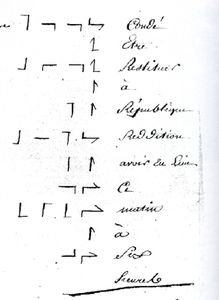 Condé
Etre
Restituer
à
République
Reddition
avoir Eu Lieu
Ce
matin
à
Six
heures